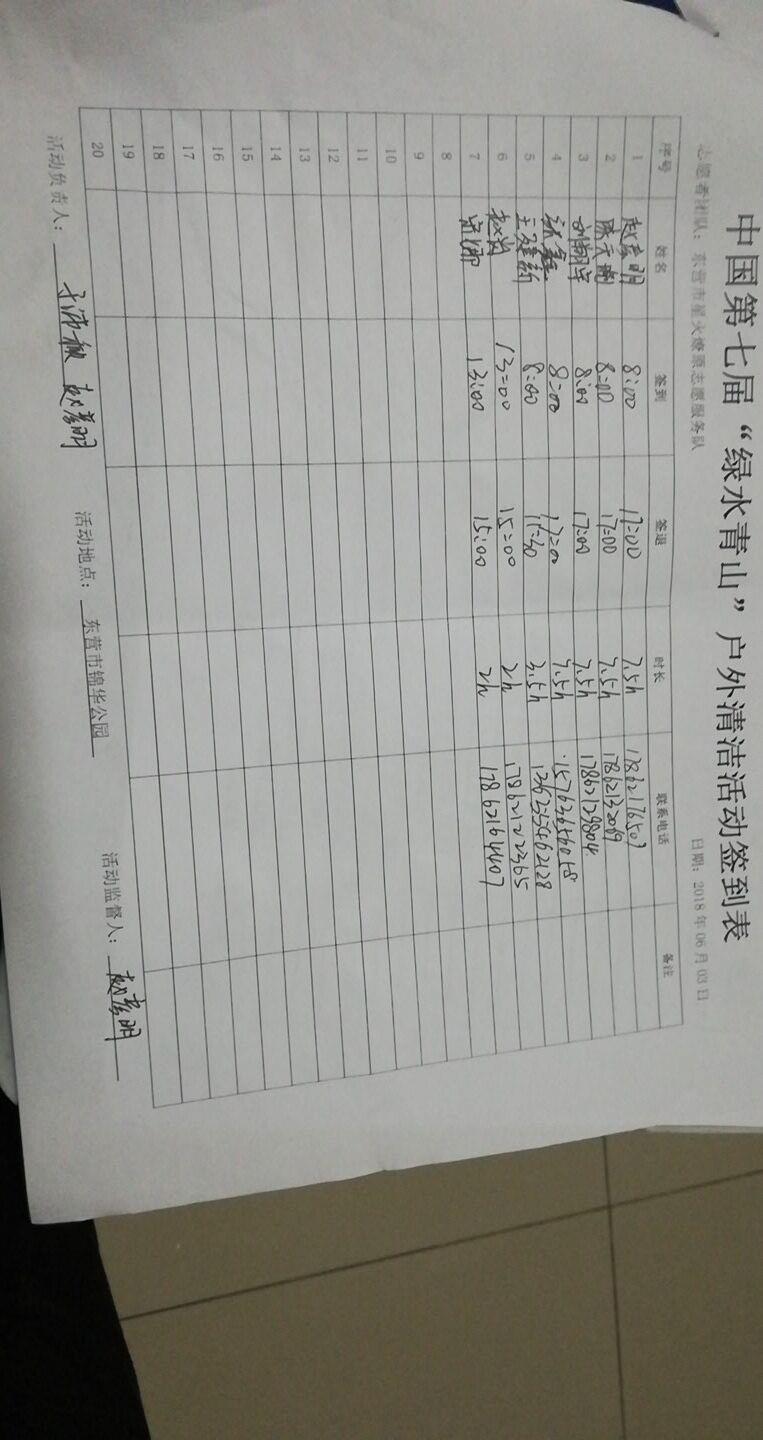 中国第七届“绿水青山”户外清洁活动签到表
志愿者团队：东营市星火燎原志愿服务队 日期：2018年06月03日
序号 姓名 签到 签退 时长 联系电话 备注
1 赵孝明 8:00 17:00 7.5h 17862176507
2 陈天 8:00 17:00 7.5h 17862132069
3 8:00 17:00 7.5h 17862129804
4 张鑫 8:00 17:00 7.5h 15763656058
5 王建新 8:00 11:30 3.5h
6 赵岩 13:00 15:00 2h 17862122365
7 宋娜 13:00 15:00 2h 17862164407
8
9
10
11
12
13
14
15
16
17
18
19
20
活动负责人： 赵孝明 活动地点：东营市锦华公园 活动监督人：赵孝明